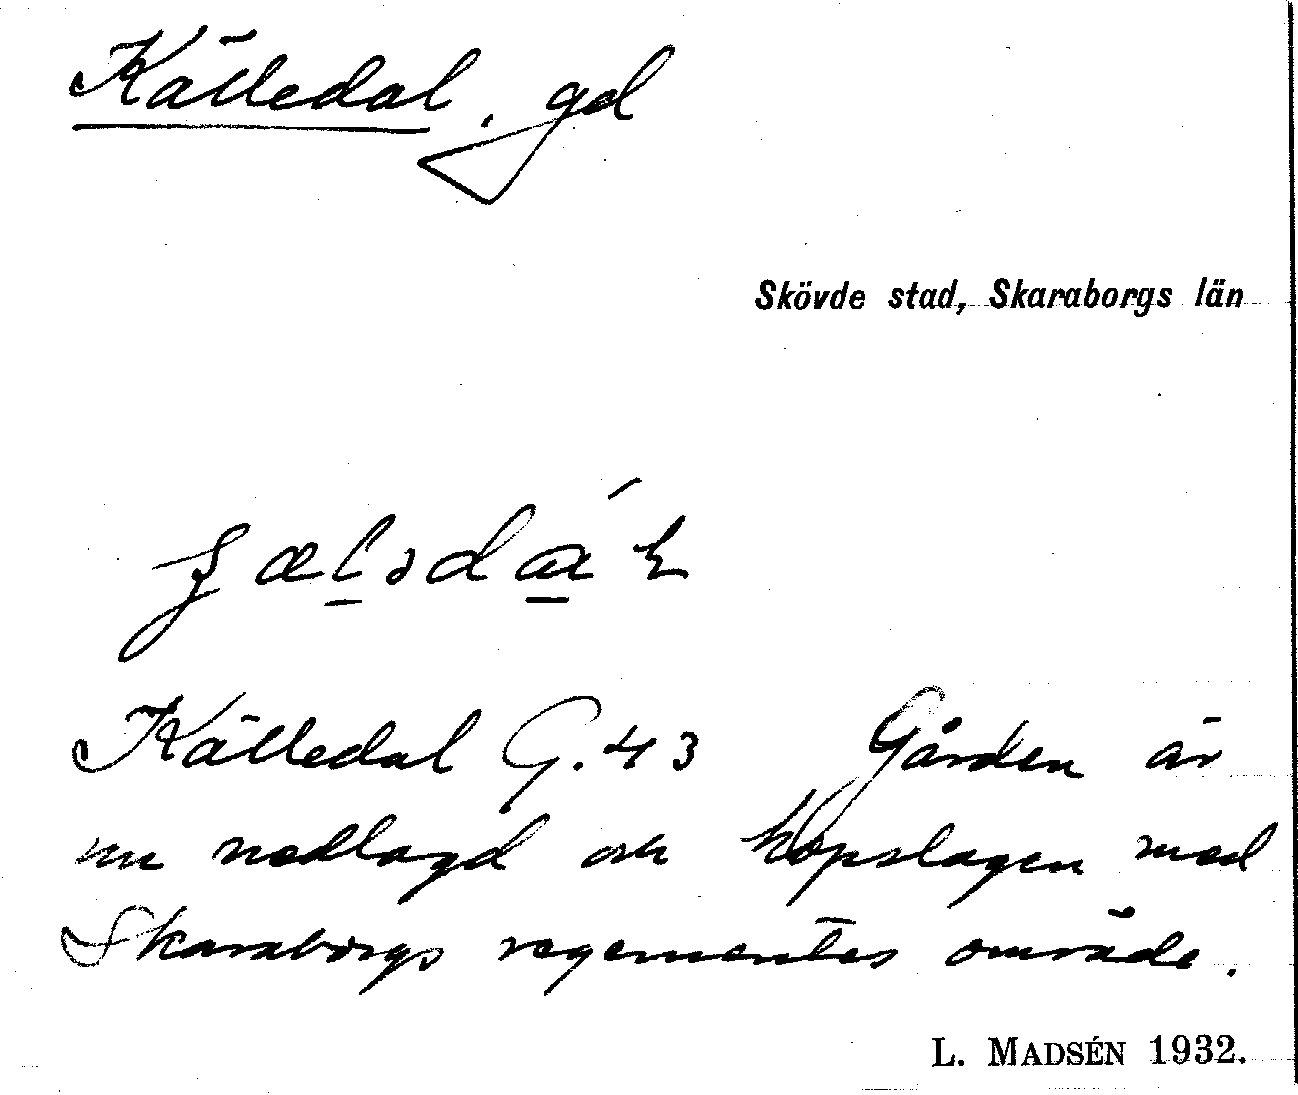 Källedal, gd
Skövde stad, Skaraborgs län
Källedal G. 43 Gården är
nu nedlagd och hopslagen med
Skaraborgs regementes område.
L. MADSÉN 1932.